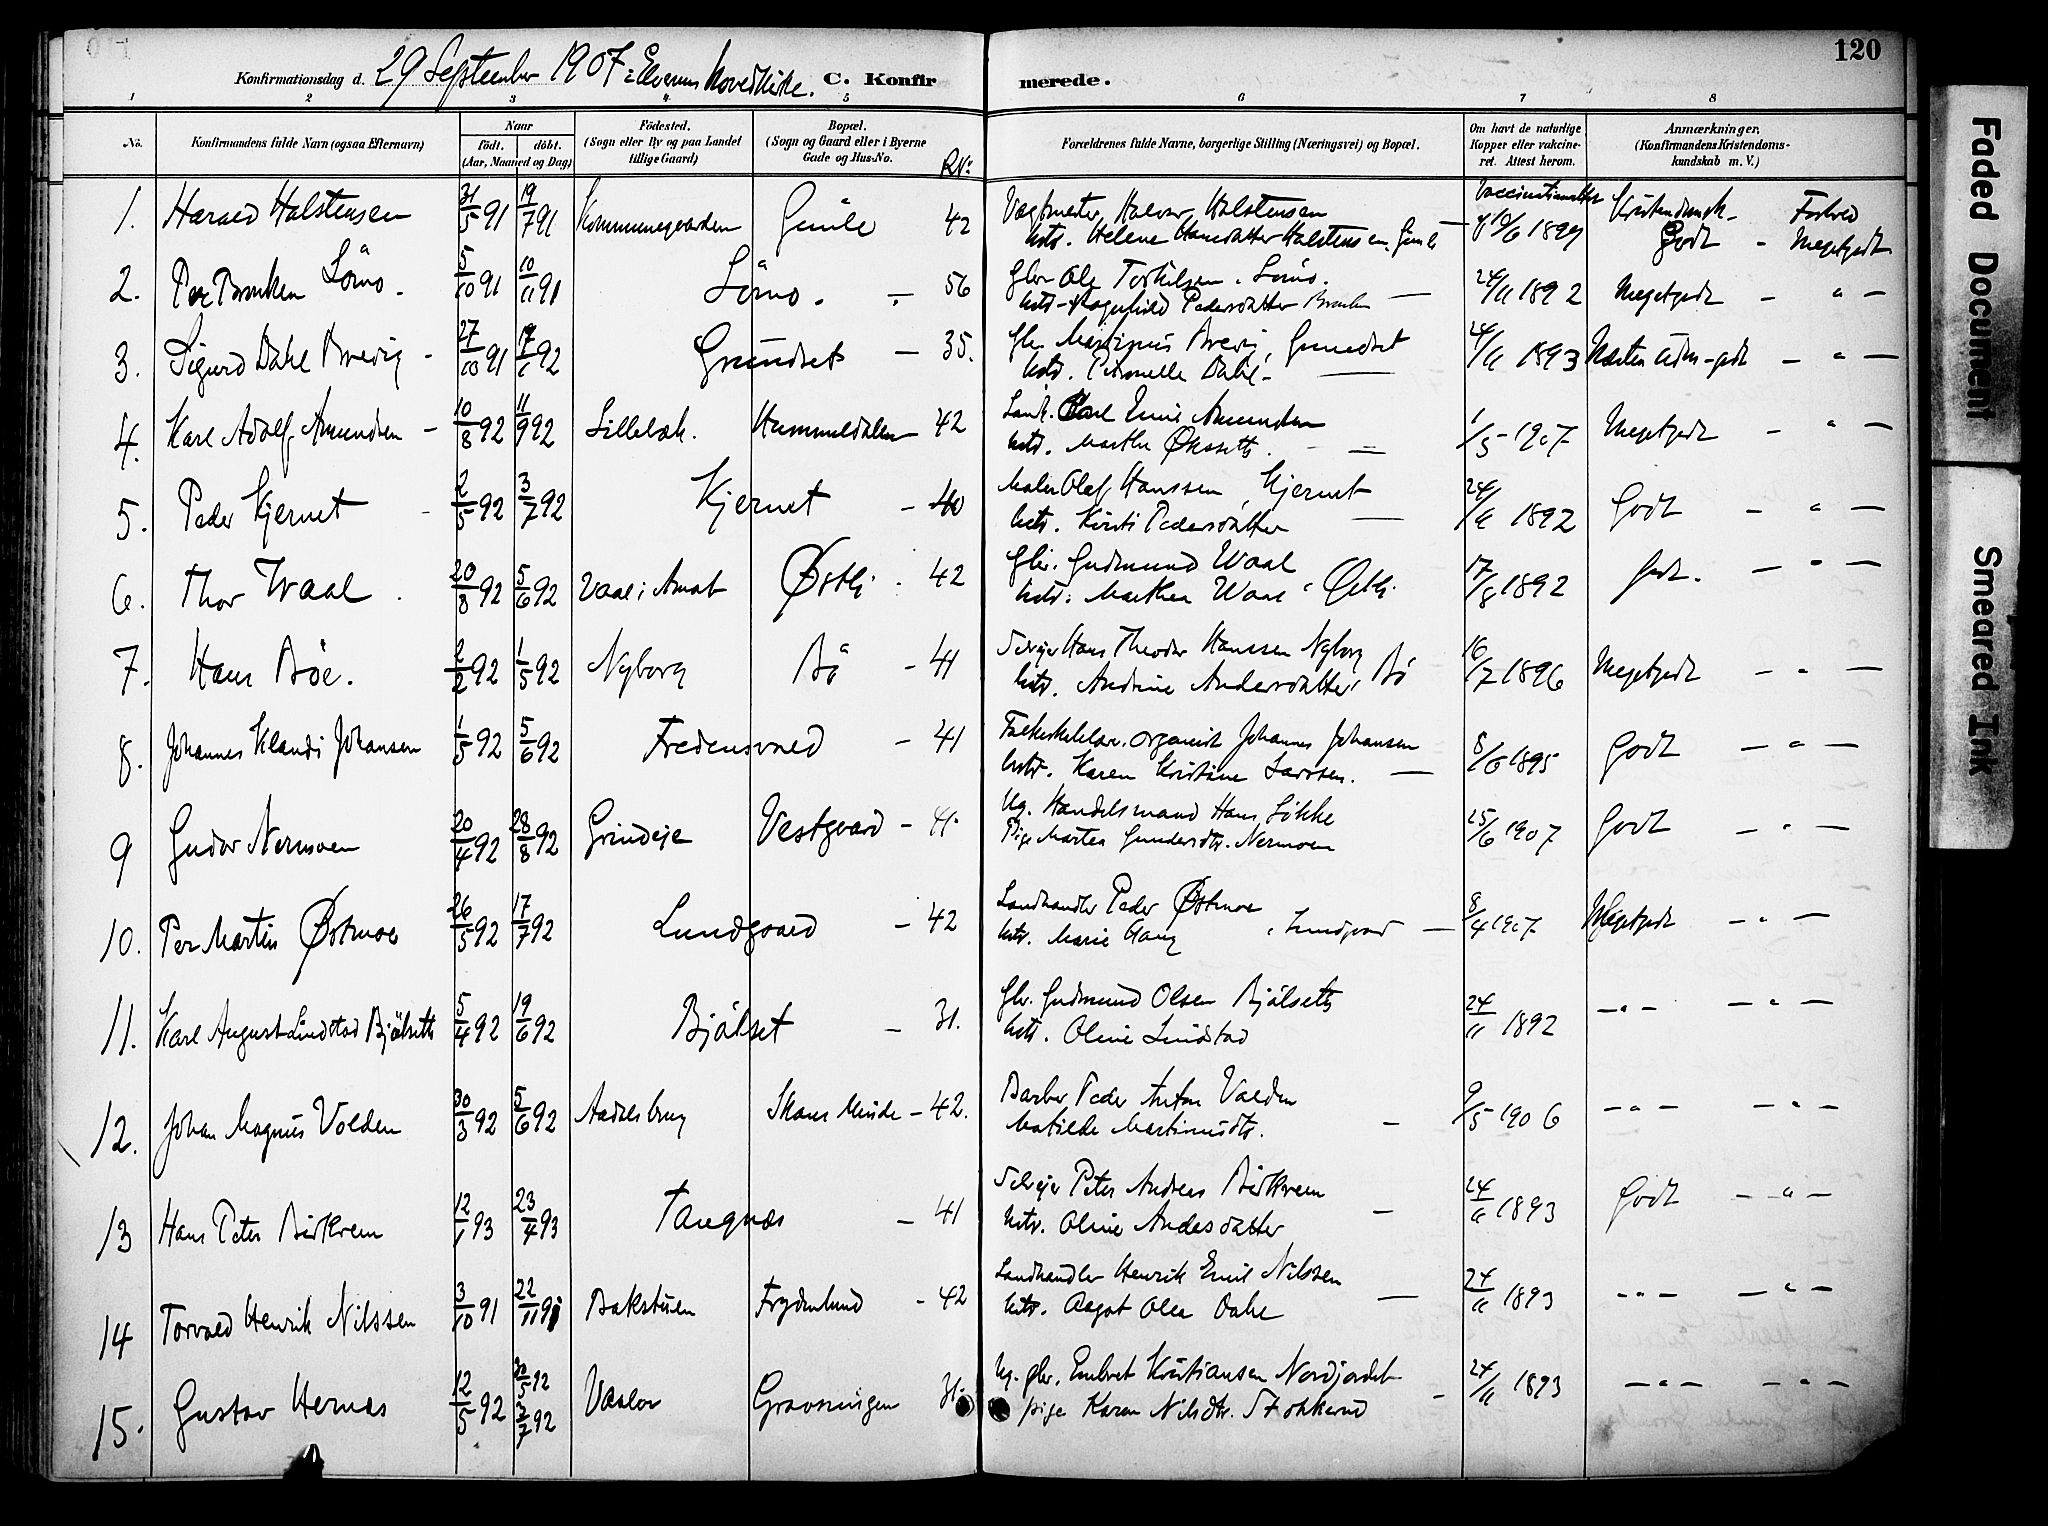 120
Konfirmationsdag d. 29 September 1907 i Elverum Hovedkirke. C. Konfirmerede.
1 2 3 4 5 6 7 8
No. Konfirmandens fulde Navn (ogsaa Efternavn) Naar født. døbt. (Aar, Maaned og Dag) Fødested. (Sogn eller By og paa Landet tillige Gaard) Bopæl. (Sogn og Gaard eller i Byerne Gade og Hus-No. Forældrenes fulde Navne, borgerlige Stilling (Næringsvei) og Bopæl. Om havt de naturlige Kopper eller vakcineret. Attest herom. Anmærkninger. (Konfirmandens Kristendomskundskab m. V.)
1. Harald Halstensen 31/5 91 19/7 91 Kommunegaarden 42 Vagtmester Halvor Halstensen
Helene Halstensen Godt - Megetgodt
2. Per Lömo 5/10 91 10/11 91 Lömo. 56 Gbr Ole Torkilsen. Lömo.
Pedersdatter 24/11 1892 Megetgodt - " -
3. Sigurd Dahl Brevig 27/10 91 17/1 92 Grundset - 35. Gbr. Martinus Brevig, Grundset
Petronelle Dahl 24/11 1893 Næsten udm-godt - " -
4. Karl Adolf Amundsen - 10/8 92 11/9 92 Lillebæk. Hummeldalen 42 Karl Emil Amundsen
Marthe Økseth. 1/5-1907 Megetgodt - " -
5. Peder Kjernet 2/5 92 3/7 92 Kjernet - 40 Maler Olaf Hanssen, Kjernet
Kirsti Pedersdatter 24/11 1892 Godt - " -
6. Thor Waal 20/8 92 5/6 92 Vaal i Aamot Østli 42 Gbr. Gudmund Waal
Marthea Waal 17/8 1892 Godt. - " -
7. Hans Böe. 2/2 92 1/5 92 Nyborg Bö - 41 Selvejer Hans Theodor Hanssen Nyborg
Andrine Andersdatter, Bö 16/7 1896 Megetgodt - " -
8. Johannes Klandi Johansen 1/5 92 5/6 92 Fredensvold - 41 organist Johannes Johansen
Karen Kristine Larssen. 8/6 1895 Godt - " -
9 Gudor Nermoen 20/4 92 28/8 92 Grindeje Vestgaard - 41. Ug. Handelsmand Hans Løkke
Pige Martea Gundersdtr. Nermoen 25/6 1907 Godt - " -
10. Per Martin Østmoe 26/5 92 17/7 92 Lundgaard - 42 Landhandler Peder Østmoe
Marie Gang, Lundgaard - 8/4 1907 Megetgodt - " -
11. Karl August Lindstad Bjölseth 5/4 92 19/6 92 Bjölset - 31. Gbr. Gudmund Olsen Bjölseth
Oline Lindstad 24/11 1892 - " - - " -
12. Johan Magnus Volden 30/3 92 5/6 92 Aadalsbrug Skans Minde - 42. Barber Peder Anton Volden
Matilde Martinusdtr. - 9/5 1906 - " - - " -
13 Hans Peter Birkrem 12/1 93 23/4 93 Tangnæs - 41 Selvejer Peter Andreas Birkrem
Oline Andersdatter - 24/11 1893 Godt - " -
14 Torvald Henrik Nilssen 3/10 91 22/11 91 Bakstuen Frydenlund - 42 Landhandler Henrik Emil Nilssen
Aagot Olea Dahl - 24/11 1893 - " - - " -
15. Gustav Hernæs 12/5 92 30/5 92 3/7 92 Vaaler Gravsningen 31. Ug. gbr. Embret Kristiansen Nordjordet
pige Karen Nilsdtr. Stokkerud - 24/11 1893 - " - - " -
Faded Document
Smeared Ink